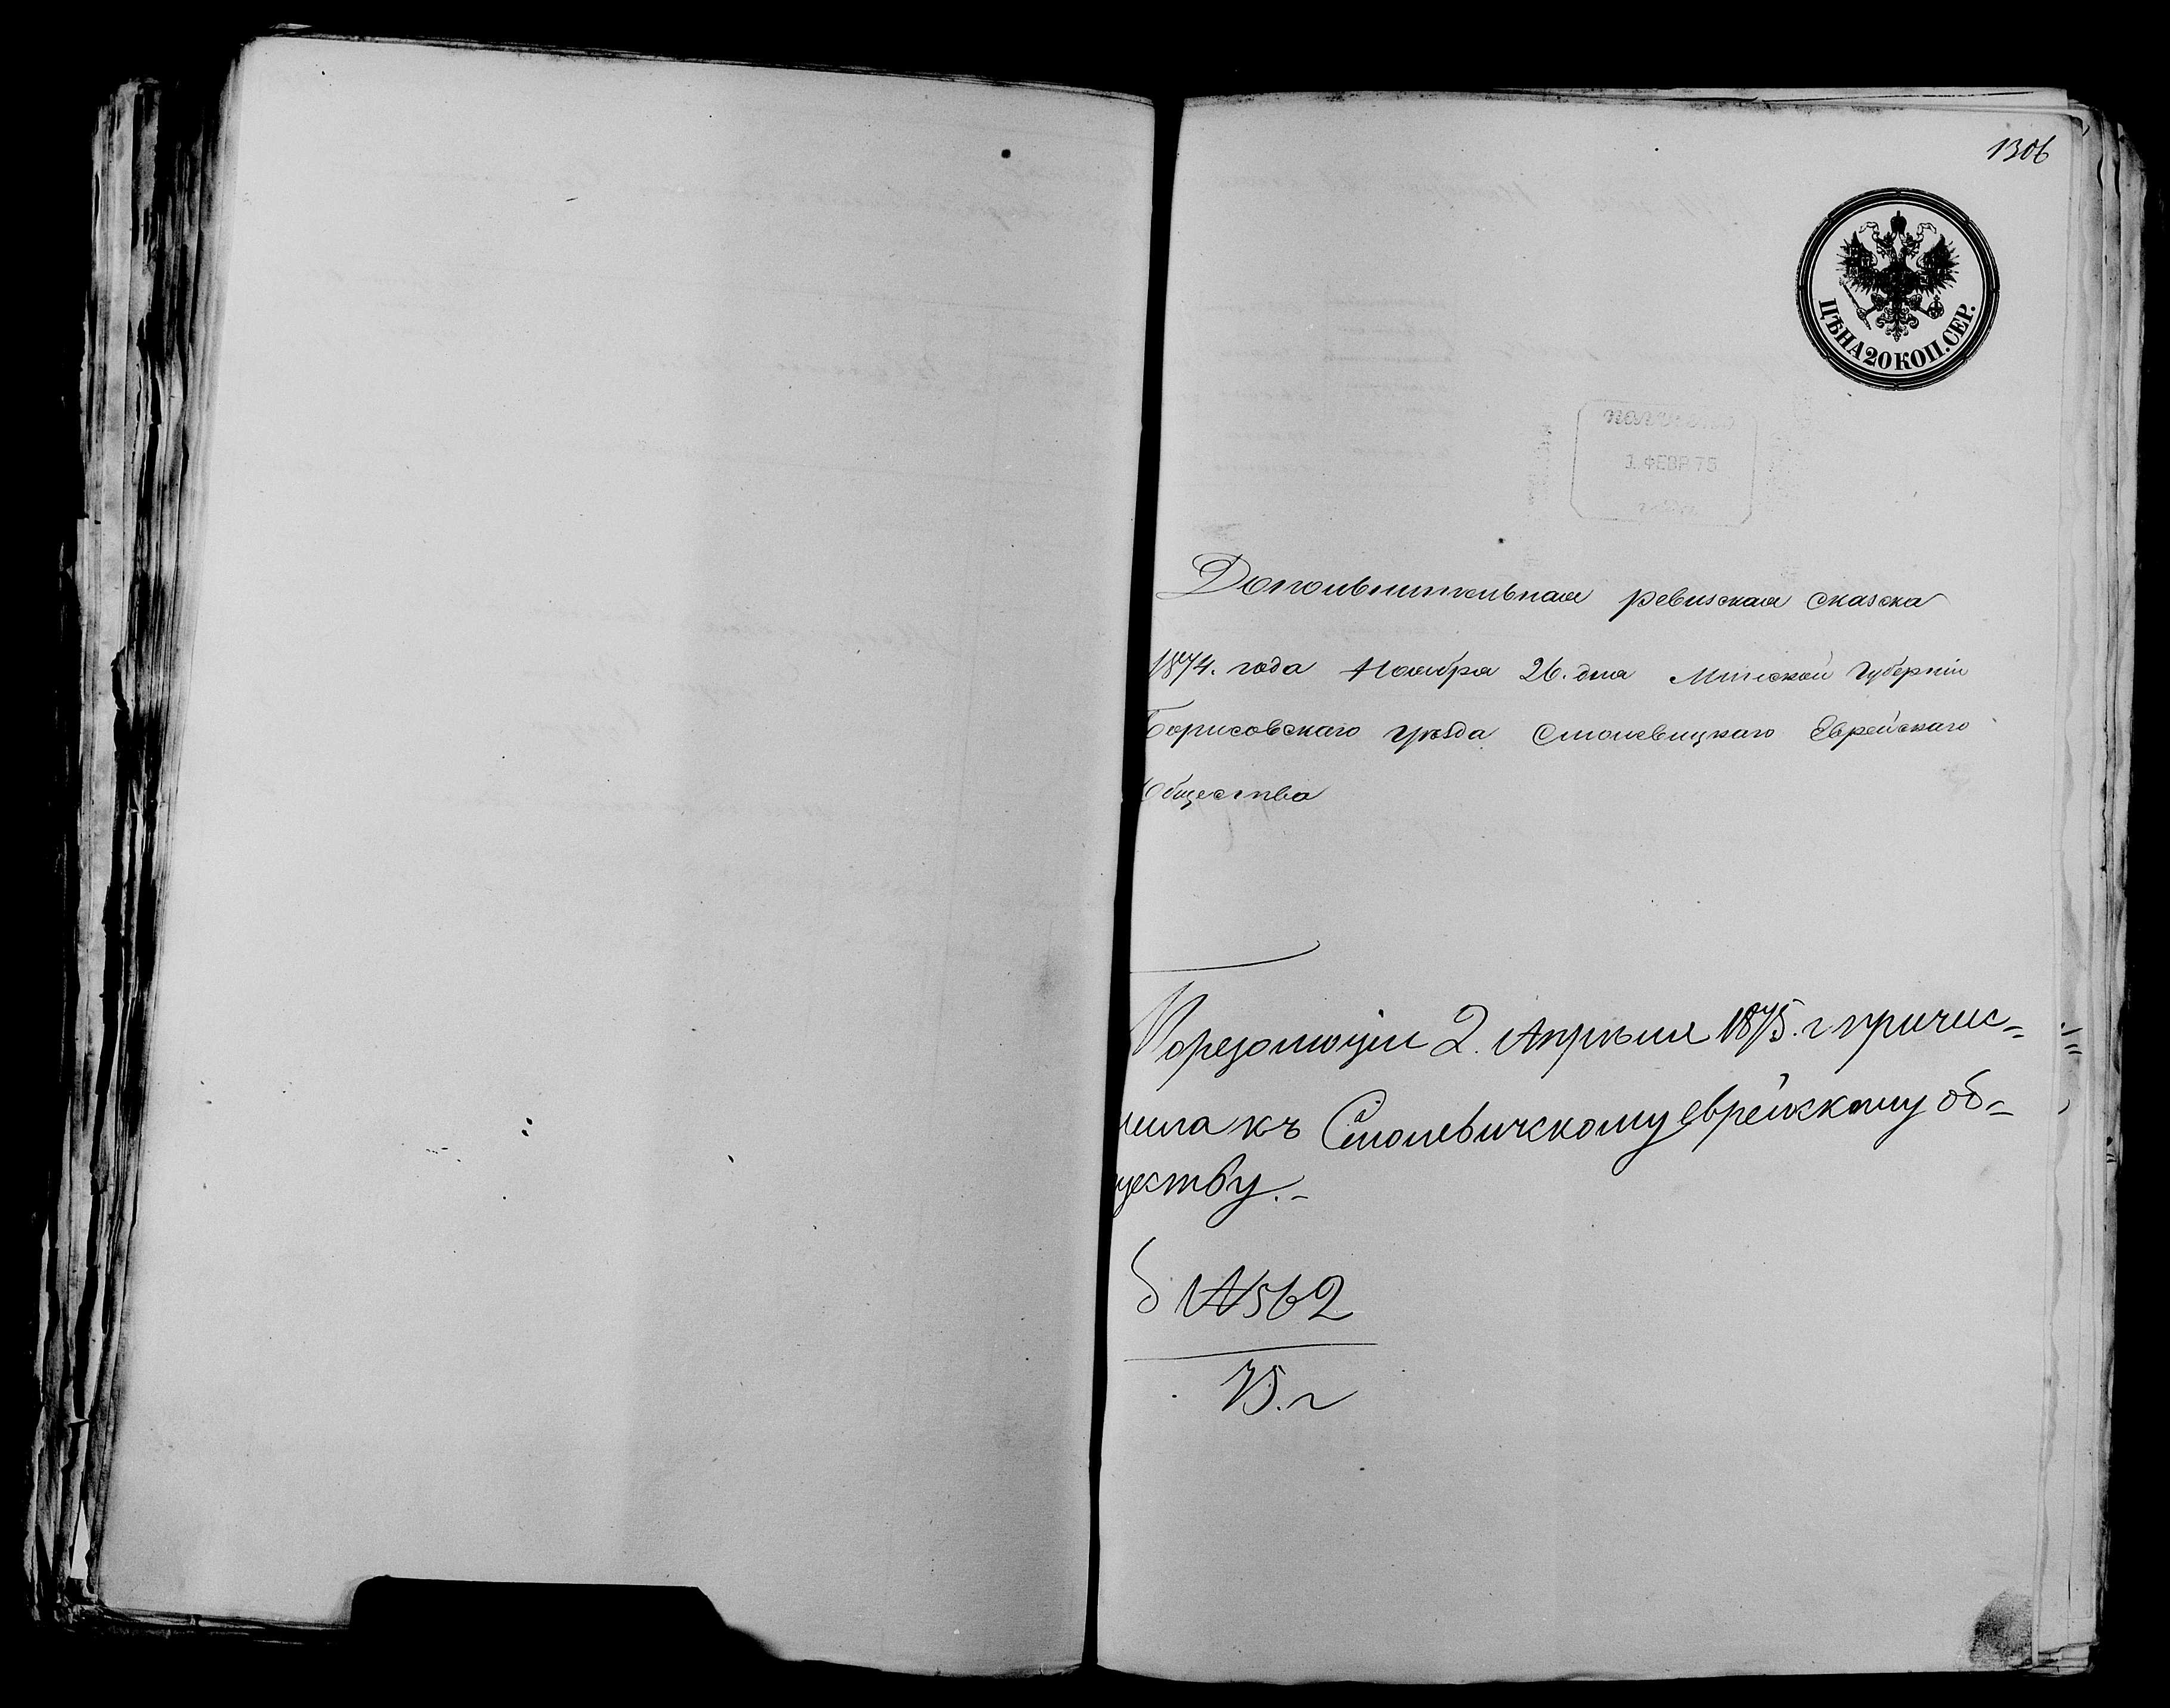 1306
ЦѢНА 20 КОП. СЕР.
1 ФЕВР 75
Дополнительная ревизская сказка
1874. года Ноября 26. дня Минской Губерніи
Борисовскаго уѣзда Смолевицкаго Еврейскаго
Общества
По резолюціи 2. Апрѣля 1875. г причис=
лена къ Смолевичскому еврейскому об=
ществу.
№ 562
75. г